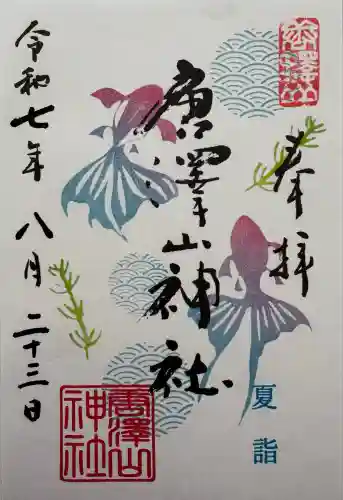 奉拝
夏詣
唐澤山神社
唐澤山
神社
令和七年八月二十三日